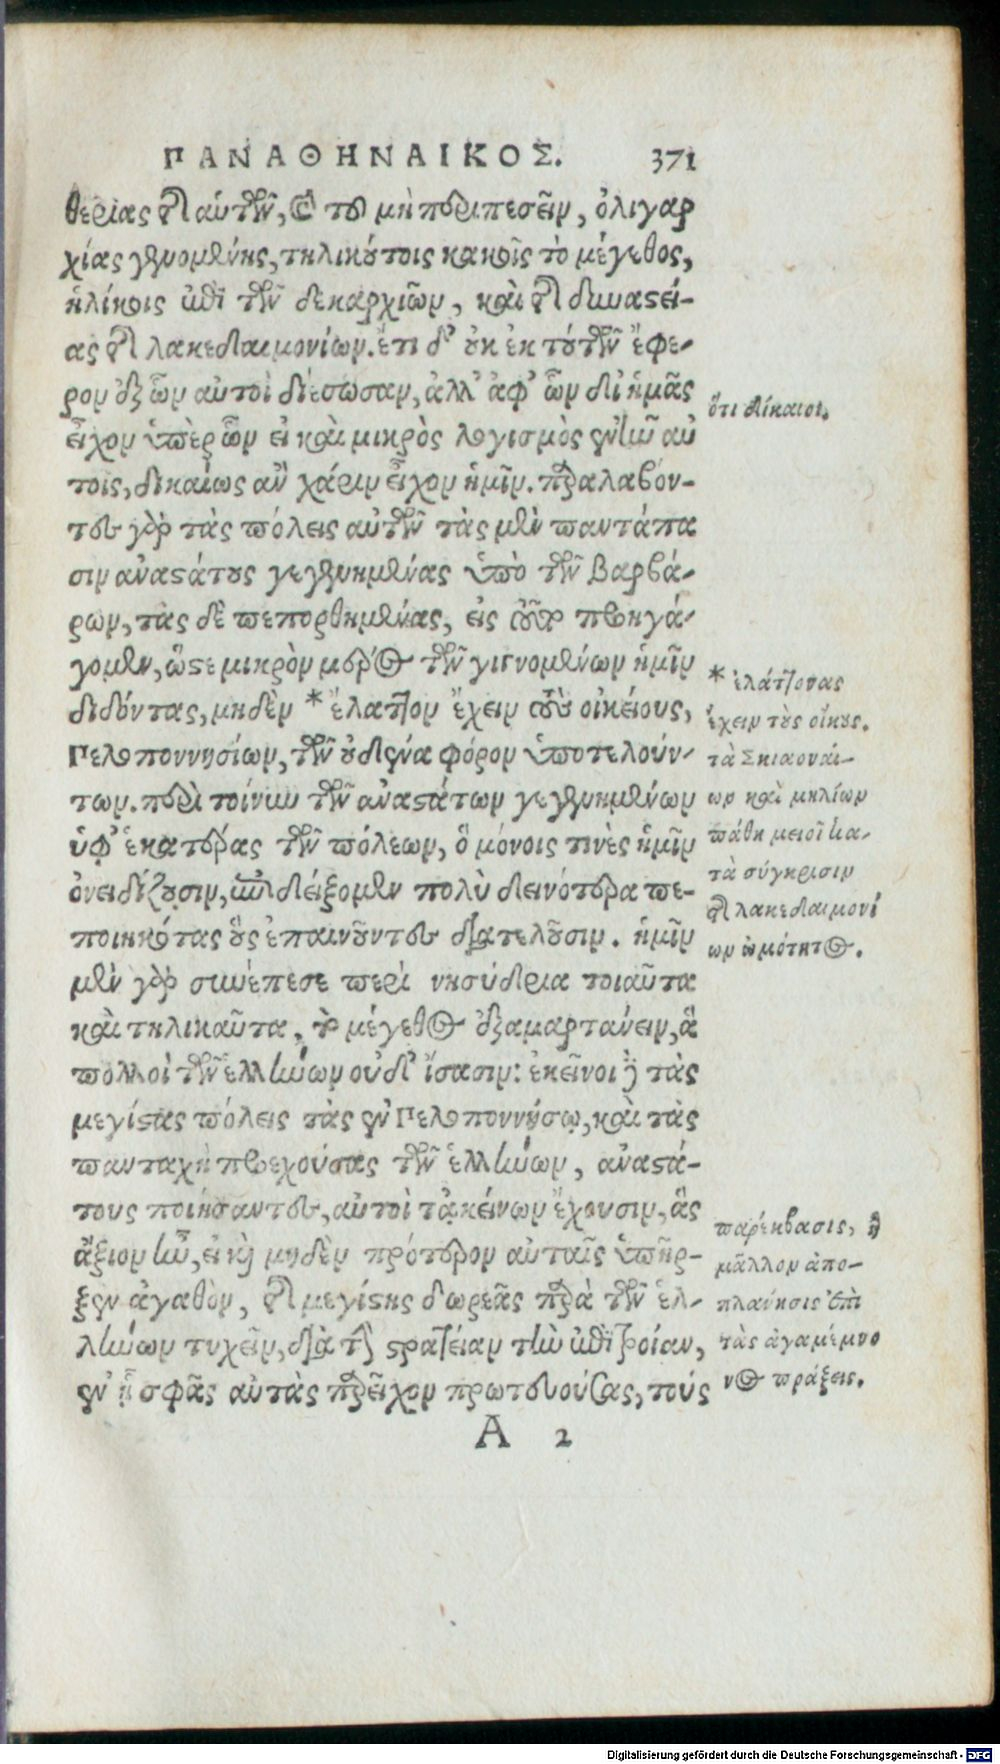 ΠΑΝΑΘΗΝΑΙΚΟΣ. 371
θερίας τῆς αὑτῶν, καὶ τοῦ μὴ περιπεσεῖν, ὀλιγαρ
χίας γενομένης, τηλικούτοις κακοῖς τὸ μέγεθος,
ἡλίκοις ἐπὶ τῶν δεκαρχιῶν, καὶ τῆς δυναστεί-
ας τῆς λακεδαιμονίων. ἔτι δ' οὐκ ἐκ τούτων ἔφε-
ρον ἐξ ὧν αὐτοὶ διέσωσαν, ἀλλ' ἀφ' ὧν δι' ἡμᾶς
εἶχον ὑπὲρ ὧν εἰ καὶ μικρὸς λογισμὸς ἐνῆν αὐ
τοῖς, δικαίως ἂν χάριν εἶχον ἡμῖν. παραλαβόν-
τες γὰρ τὰς πόλεις αὐτῶν τὰς μὲν παντάπα
σιν ἀναστάτους γεγενημένας ὑπὸ τῶν βαρβά-
ρων, τὰς δὲ πεπορθημένας, εἰς τοῦτο προηγά-
γομεν, ὥστε μικρὸν μέρος τῶν γιγνομένων ἡμῖν
διδόντας, μηδὲν * ἔλαττον ἔχειν τοὺς οἰκείους,
Πελοποννησίων, τῶν οὐδένα φόρον ὑποτελούν-
των. περὶ τοίνυν τῶν ἀναστάτων γεγενημένων
ὑφ' ἑκατέρας τῶν πόλεων, ὃ μόνοις τινὲς ἡμῖν
ὀνειδίζουσιν, ἐπιδείξομεν πολὺ δεινότερα πε-
ποιηκότας οὓς ἐπαινοῦντες διατελοῦσιν. ἡμῖν
μὲν γὰρ συνέπεσε περὶ νησύδρια τοιαῦτα
καὶ τηλικαῦτα, τὸ μέγεθος ἐξαμαρτάνειν, ἃ
πολλοὶ τῶν ἑλλήνων οὐδ' ἴσασιν: ἐκεῖνοι δὲ τὰς
μεγίστας πόλεις τὰς ἐν Πελοποννήσῳ, καὶ τὰς
πανταχῆ προεχούσας τῶν ἑλλήνων, ἀναστά-
τους ποιήσαντες, αὐτοὶ τἀκείνων ἔχουσιν, ἃς
ἄξιον ἦν, εἰ καὶ μηδὲν πρότερον αὐταῖς ὑπῆρ-
ξεν ἀγαθὸν, τῆς μεγίστης δωρεᾶς παρὰ τῶν ἑλ-
λήνων τυχεῖν, διὰ τὴν στρατείαν τὴν ἐπὶ τροίαν,
ἐν ᾗ σφᾶς αὐτὰς παρεῖχον πρωτευούσας, τούς
Α 2
ὅτι δίκαιοι.
* ἐλάττονας
ἔχειν τοὺς οἴκους.
τὰ Σκιωναί-
ων καὶ μηλίων
πάθη μειοῖ κα-
τὰ σύγκρισιν
τῆς λακεδαιμονί
ων ὠμότητος.
παρέκβασις, ἢ
μᾶλλον ἀπο-
πλάνησις ἐπὶ
τὰς ἀγαμέμνο
νος πράξεις.
Digitalisierung gefördert durch die Deutsche Forschungsgemeinschaft - DFG